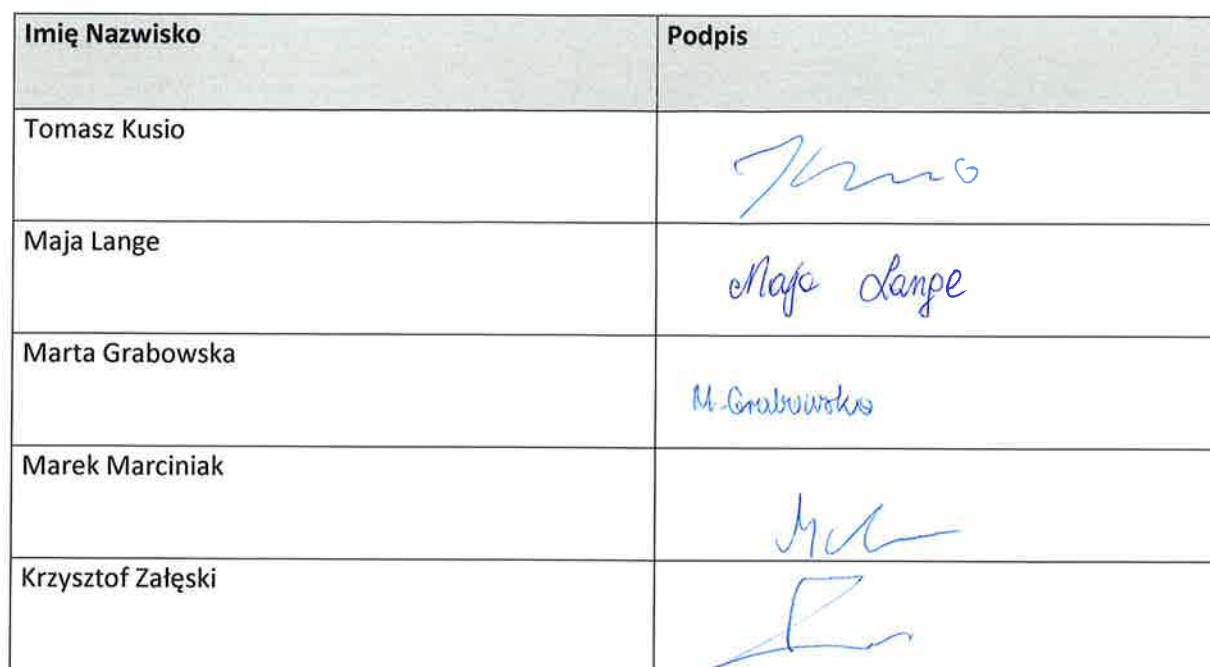 Imię Nazwisko Podpis
Tomasz Kusio
Maja Lange Maja Lange
Marta Grabowska M. Grabowska
Marek Marciniak
Krzysztof Załęski